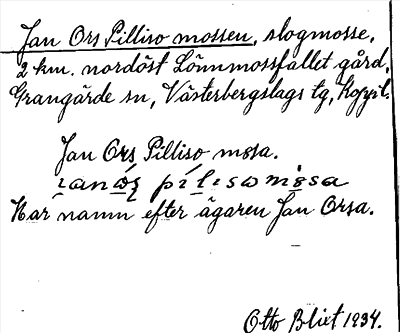 Jan Ors Pilliso mossen, slogmosse,
2 km. nordöst Lönnmossfallet gård,
Grangärde sn, Västerbergslags tg, Koppl.
Jan Ors Pilliso mosa.
pilisomosa
Har namn efter ägaren Jan Orsa.
Otto Blixt 1934.